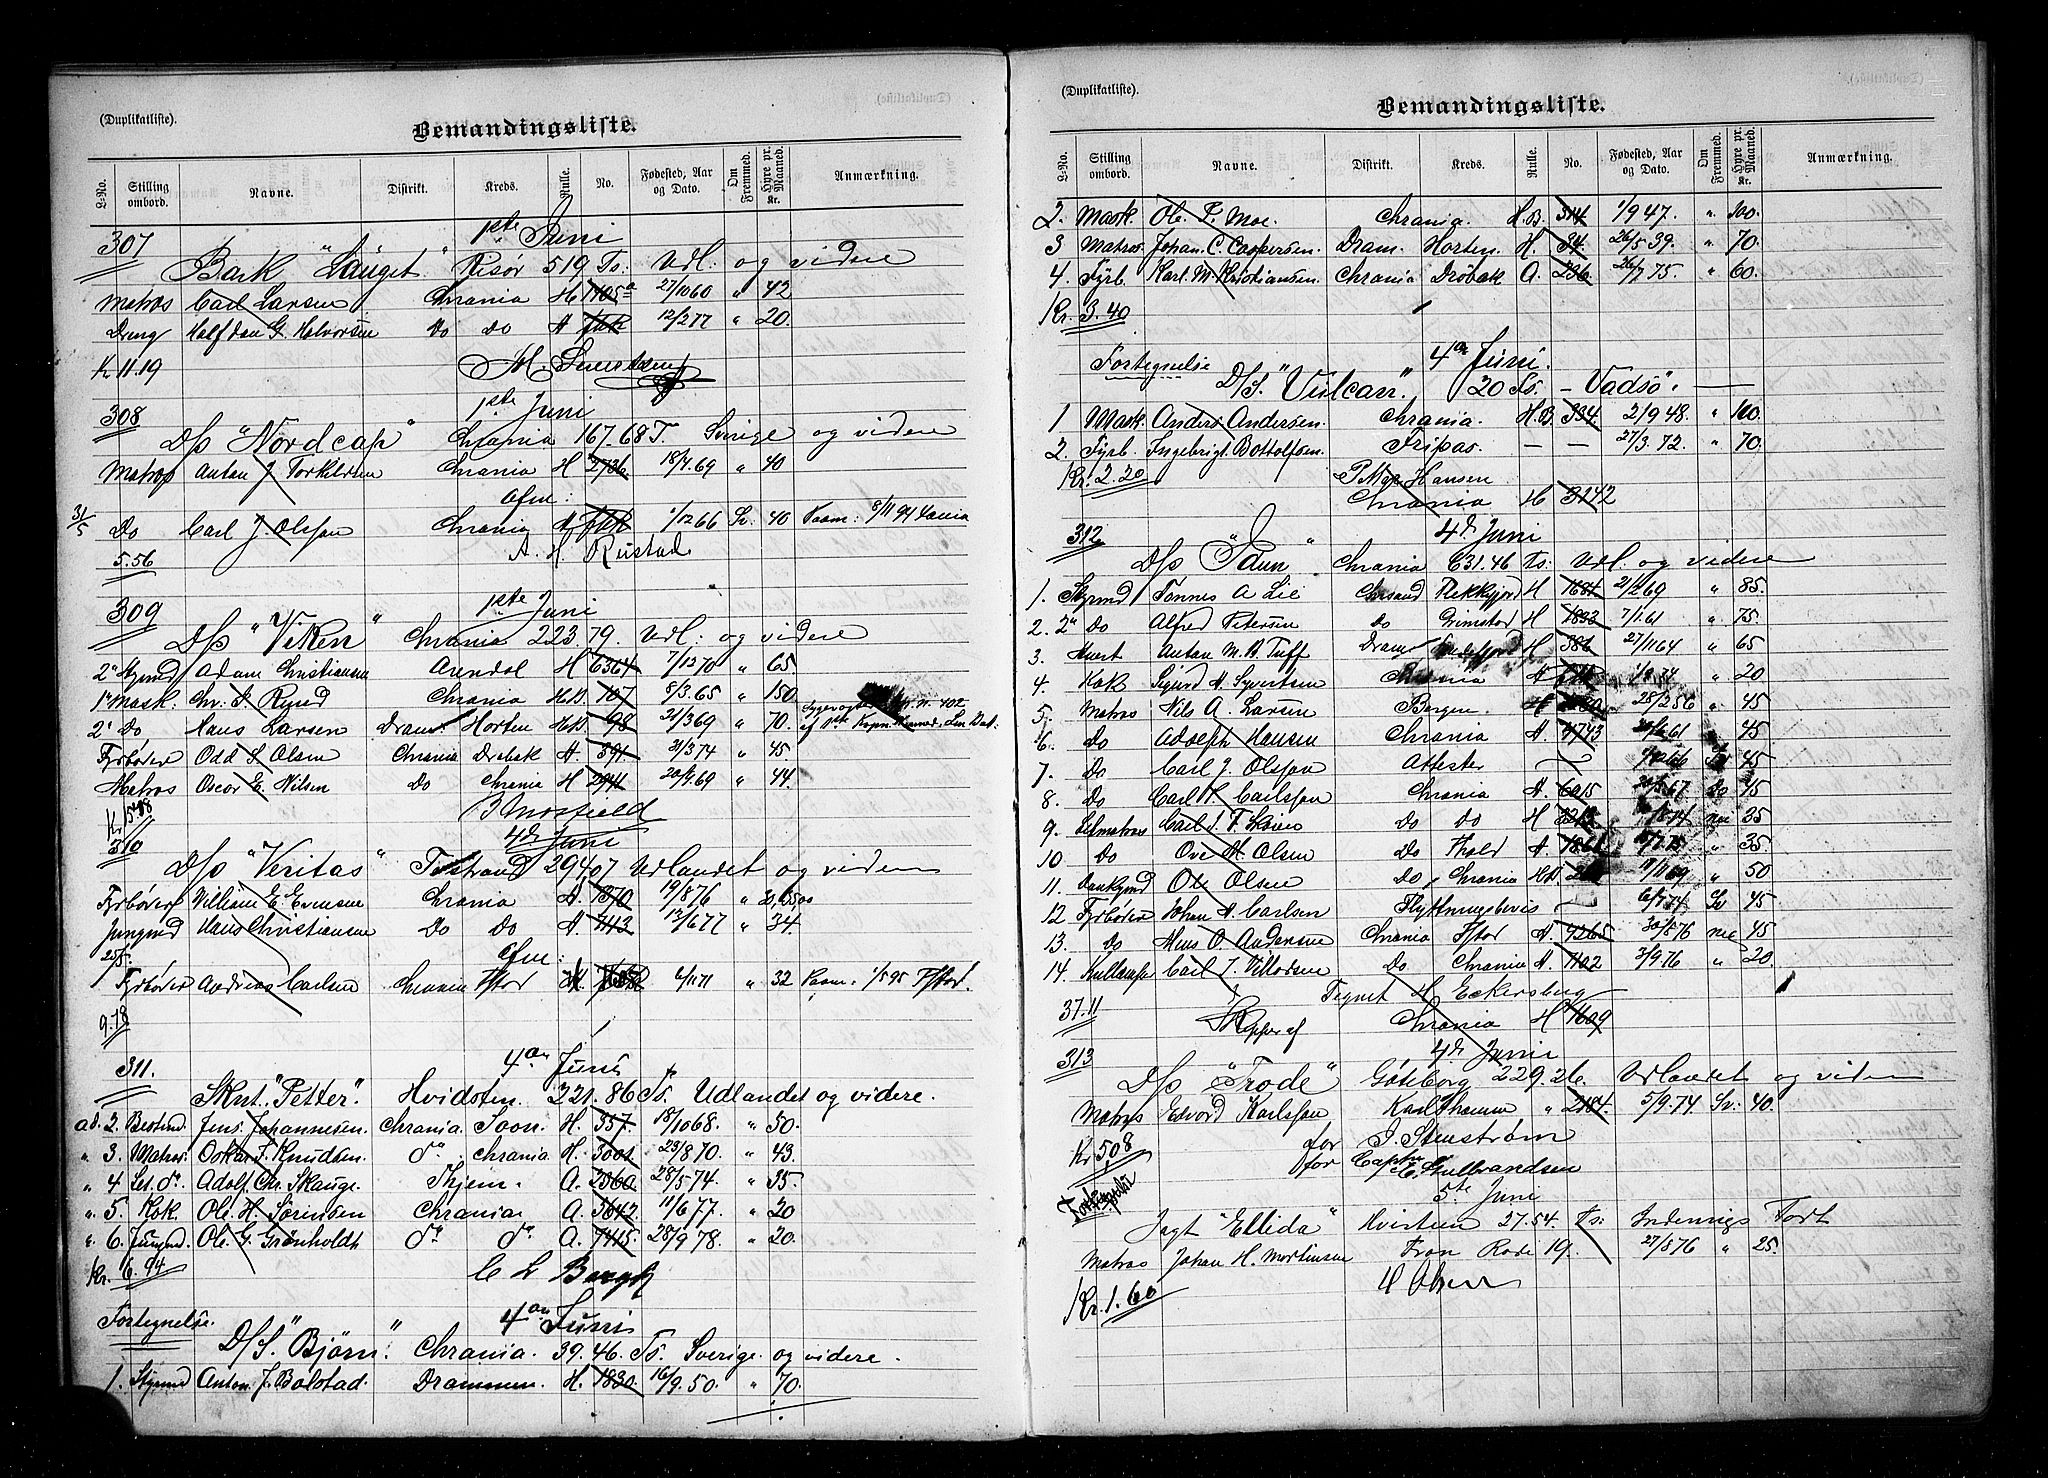 (Duplikatliste).
Bemandingsliste.
L-No. Stilling ombord. Navne. Distrikt. Kreds. Rulle. No. Fødested, Aar og Dato. Om Fremmed. Hyre pr. Maaned. Kr. Anmærkning.
307 1ste Juni
Bark "Lauget" Risør 519 Ts. Udl. og videre
Matros Carl Larsen Chrania H 1405a 27/10 60 " 42
Dreng Halfdan G. Halvorsen Do Do A 12/2 77 " 20.
Kr 11.19
308 1ste Juni
D/s "Nordcap" Chrania 167.68 T. Sverige og videre
Matros Anton J Torkildsen Chrania H 2736 18/7.69 " 40
31/5 Do Carl J. Olsson Chrania A 1/12 66 Sv. 40 Paam: 8/11 94
5.56 A. H. Rustad
309 1ste Juni
D/s "Viken" Chrania 223.79. Udl: og videre
2n Styrmd Adam Christiansen Arendal H 6364 7/12 70 " 65
1n Mask. Chr. Rynd Chrania H.B. 107 8/3.65 " 150
2n Do Hans Larsen Dram. Horten H.B. 98 21/3 69 " 70.
Fyrbøder Odd S Olsen Chrania Drøbak A. 391 21/3 74 " 45.
Matros Oscar E. Nilsen Do Chrania H 2941 20/9.69 " 44.
310 4de Juni
D/s "Veritas" Tvestrand 294.07 Udlandet og videre
Fyrbøder William E. Evensen Chrania A. 1370 19/8 76 "
Jungmd Hans Christiansen Do Do A. 7113 13/6 77 " 34.
25/5.
Fyrbøder Andreas Carlsen Chrania Fstad 6/11 71 " 32 Paam: 1/5 95 Fstad.
9.18
311. 4de Juni
Sknt. "Petter". Hvidsten. 221.86 Ts. Udlandet og videre.
ad. 2. Bestmd Jens Johannesen. Chrania. Soon. H. 357. 18/10 68. " 50.
" 3. Matros Oskar F. Knudsen. do chrania H. 3001 23/8 70. " 43.
" 4 Let. do. Adolf Chr. Skauge. Thjem. A. 2060 28/5 74. " 35.
" 5. Kok. Ole H. Sørensen Chrania A. 3642 11/6 77. " 20
" 6. Jungmd. Ole G. Grønholdt do do A. 7415. 28/9 78. " 20.
Kr. 6.94 C L Bergh
Fortegnelse. 4de Juni
D/S. "Bjørn." Chrania. 39.46 Ts. Sverige og videre.
1. Styrmd Anton J. Bolstad. Drammen. H. 1830 16/9.50. " 70.
(Duplikatliste).
Bemandingsliste.
L-No. Stilling ombord. Navne. Distrikt. Kreds. Rulle. No. Fødested, Aar og Dato. Om Fremmed. Hyre pr. Maaned. Kr. Anmærkning.
2. Mask. Ole P. Moe. Chrania. H.B. 314 1/9 47. " 100.
3 Matros. Johan C. Caspersen. Dram. Horten. H. 34. 26/5 39. " 70.
4. Fyrb. Karl M. Kristiansen. Chrania Drøbak A. 236 26/7 75. " 60.
Kr. 3.40
Fortegnelse 4de Juni.
D/S. "Vulcan". 20 Ts. - Vadsø.
1 Mask. Anders Andersen. Chrania. H.B. 334 2/9 48. " 100.
2. Fyrb. Ingebrigt Bottolfsen. Fripas. — — 27/3.72. " 70.
Kr. 2.20 Hansen
Chrania H 3142
312 4de Juni
D/s "Daun" Chrania 631.46 Ts. Udl. og videre
1. Styrmd Tønnes A Lie Chrsand Flekkefjord H 1684 21/2 69 " 85.
2. 2n Do Alfred Petersen Do Grimstad H 1893 7/1.61 " 75.
3. Anton M. A. Tuff Dram. H. 386 27/11 64 " 65
4. Kok Sigurd A. Syvertsen Chrania A " 20
5. Matros Nils A. Larsen Bergen H 28/2 56 " 45
6. Do Adolph Hansen Chrania A. 3743 " 45
7. Do Carl J. Olsson Attester Sv 45
8. Do Carl A. Carlsson Chrania A. 6015 Do 45
9. Letmatros Carl J. F. Skøien Do Do H nei 35
10. Do Ove H. Olsen Do Thold A 1861 " 35.
11. Donkymd Ole Olsen Do Chrania H.B. 9/11 69 " 50
12 Fyrbøder Johan A. Carlsen Flytningsbevis 6/7 74 Sv 45
13. Do Hans O. Andersen Chrania Fstad A. 7265 30/8 76 nei 45
14. Kullemper Carl J. Villadsen Do Chrania A. 1102 3/9 76 " 20.
37.11 Tegnet H Eckersberg
Skipper af Chrania H 1609
313 4de Juni
D/s "Frode" Göteborg 229.26. Udlandet og videre
Matros Edvard Karlsson Karlshamn " 2184. 5/9.74 Sv. 40.
Kr 5.08 for J. Stenström
for Captn C. Gulbrandsen
Fortegnelse 5te Juni
Jagt "Ellida" Hvisten 27.54. Ts. Indenrigs Fart
Matros Johan H. Martinsen Fran Rode 19. 27/8 76 " 25.
Kr. 1.60 H Olsen